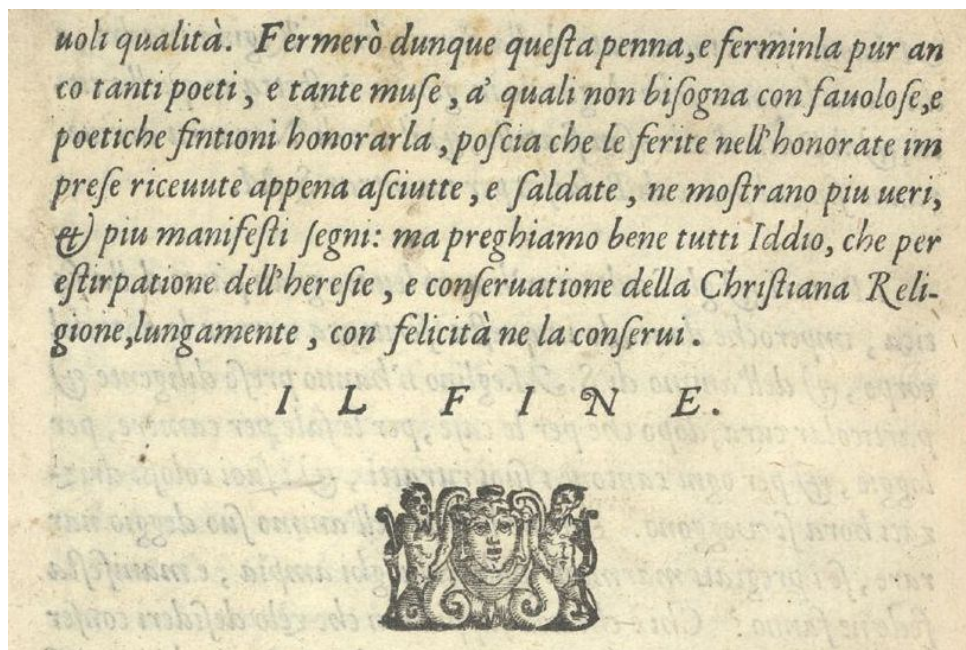 uoli qualità. Fermerò dunque queſta penna, e ferminla pur an
co tanti poeti, e tante muſe, a' quali non biſogna con fauoloſe, e
poetiche fintioni honorarla, poſcia che le ferite nell'honorate im
preſe riceuute appena aſciutte, e ſaldate, ne moſtrano piu ueri,
& piu manifeſti ſegni: ma preghiamo bene tutti Iddio, che per
eſtirpatione dell'hereſie, e conſeruatione della Chriſtiana Reli-
gione, lungamente, con felicità ne la conſerui.
I L F I N E.